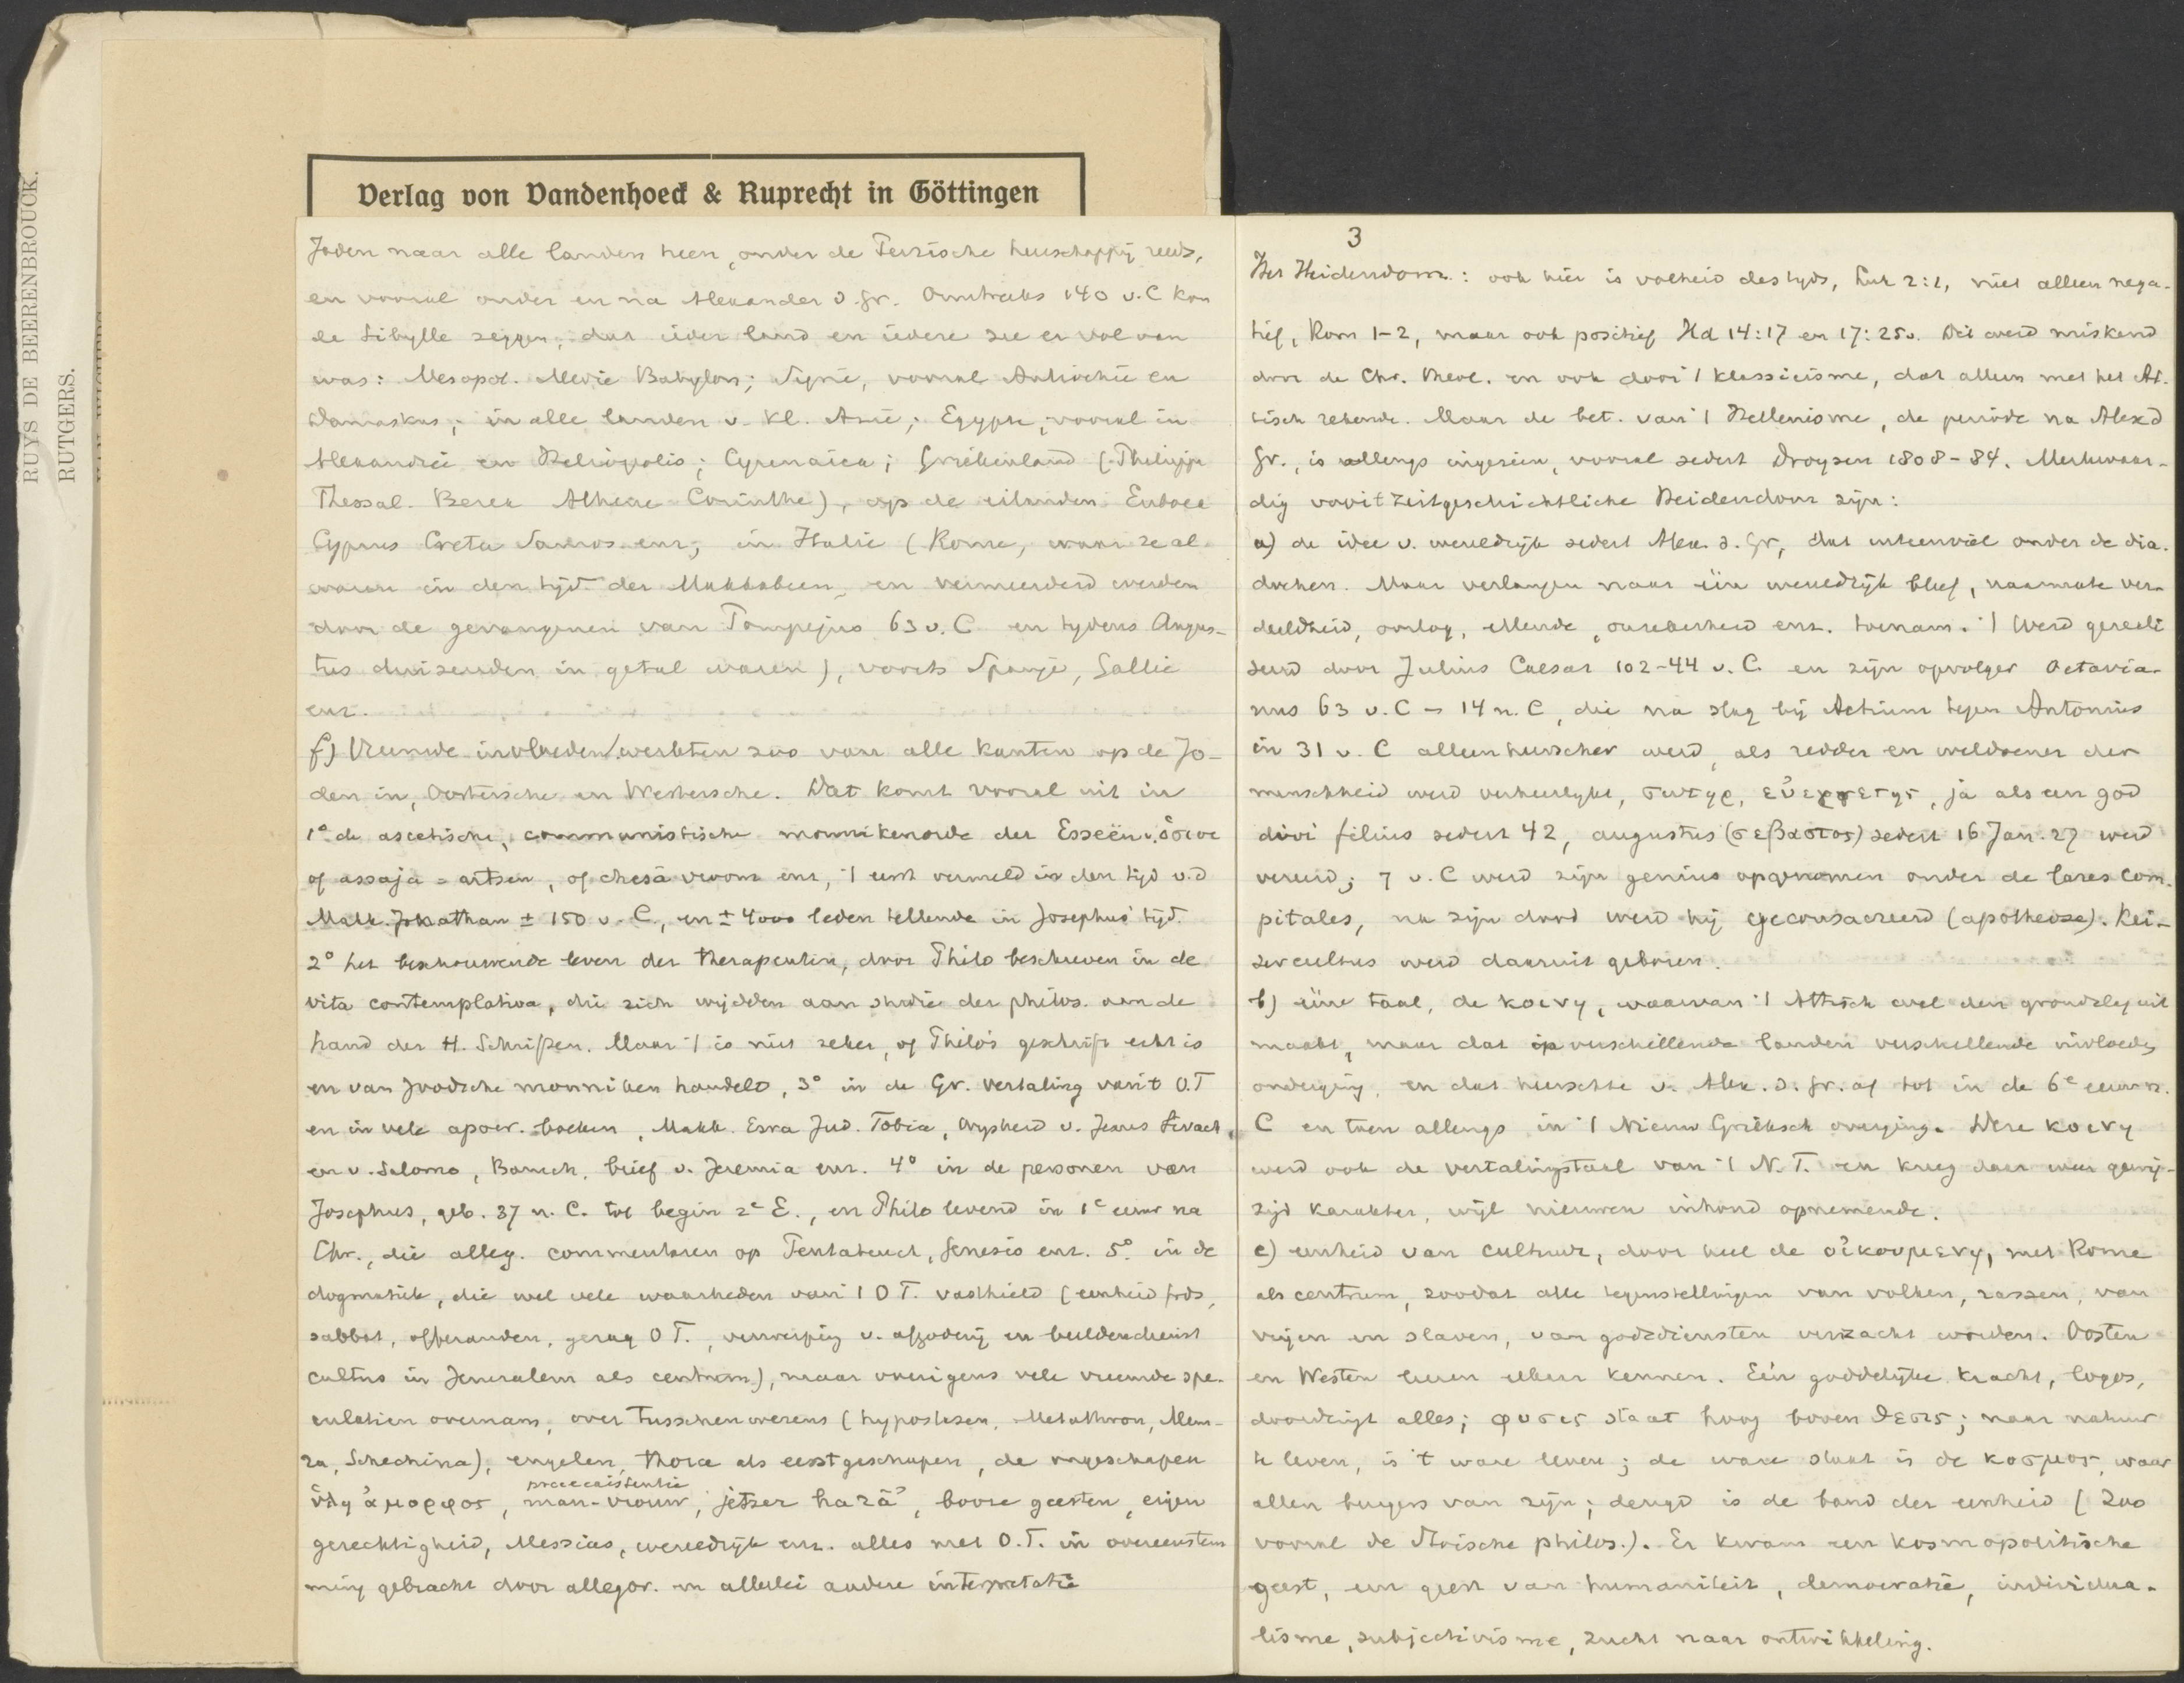 RUYS DE BEERENBROUCK.
RUTGERS.
Verlag von Vandenhoeck & Ruprecht in Göttingen
Joden naar alle landen heen, onder de Perzische heerschappij reeds,
en vooral onder en na Alexander d. Gr. Omstreeks 140 v. C kon
de Sibylle zeggen, dat ieder land en iedere zee er vol van
was: Mesopot. Medie Babylon; Syrië, vooral Antiochië en
Damaskus; in alle landen v. Kl. Azië; Egypte, vooral in
Alexandrië en Heliopolis; Cyrenaica; Griekenland (Philippi
Thessal. Berea Athene Corinthe), op de eilanden Euboea
Cyprus Creta Samos enz; in Italië (Rome, waar ze al
waren in den tijd der Makkabeen, en vermeerderd werden
door de gevangenen van Pompejus 63 v. C en tydens Augus-
tus duizenden in getal waren), voorts Spanje, Gallië
enz.
f) Vreemde invloeden werkten zoo van alle kanten op de Jo-
den in, Oostersche en Westersche. Dat komt vooral uit in
1° de ascetische, communistische monnikenorde der Esseën v. ὅσιοι
of assaja = artsen, of chesā vroom enz, 't eerst vermeld in den tijd v.d
Makk. Jonathan ± 150 v. C, en ± 4000 leden tellende in Josephus' tijd.
2° het beschouwende leven der therapeuten, door Philo beschreven in de
vita contemplativa, die zich wijdden aan studie der philos. aan de
hand der H. Schriften. Maar 't is niet zeker, of Philo's geschrift echt is
en van Joodsche monniken handelt, 3° in de Gr. vertaling van 't O.T
en in vele apocr. boeken, Makk. Esra Jud. Tobia, Wijsheid v. Jezus Sirach,
en v. Salomo, Baruch, brief v. Jeremia enz. 4° in de personen van
Josephus, geb. 37 n. C. tot begin 2e E., en Philo levend in 1e eeuw na
Chr., die alleg. commentaren op Pentateuch, Genesis enz. 5° in de
dogmatiek, die wel vele waarheden van 't O T. vasthield (eenheid Gods,
sabbat, offeranden, gezag O T., verwerping v. afgoderij en beeldendienst
cultus in Jeruzalem als centrum), maar overigens vele vreemde spe-
culatien overnam, over tusschenwezens (hypostasen, Metathron, Mem-
ra, Schechina), engelen, thora als eerst geschapen, de ongeschapen
praeexistentie
ὕλη ἄμορφος, man-vrouw, jetser harā', booze geesten, eigen
gerechtigheid, Messias, wereldrijk enz. alles met O.T. in overeenstem
ming gebracht door allegor. en allerlei andere interpretatie
3
Het Heidendom: ook hier is volheid des tijds, Luk 2:1, niet alleen nega-
tief, Rom 1-2, maar ook positief Hd 14:17 en 17:25v. Dit werd miskend
door de Chr. theol. en ook door 't klassicisme, dat alleen met het At-
tisch rekende. Maar de bet. van 't Hellenisme, de periode na Alex d
Gr., is allengs ingezien, vooral sedert Droysen 1808-84. Merkwaar-
dig voor 't zeitgeschichtliche Heidendom zijn:
a) de idee v. wereldrijk sedert Alex. d. Gr, dat uiteenviel onder de dia-
dochen. Maar verlangen naar één wereldrijk bleef, naarmate ver-
deeldheid, oorlog, ellende, onzekerheid enz. toenam. 't Werd gereali
seerd door Julius Caesar 102-44 v. C. en zijn opvolger Octavia-
nus 63 v. C - 14 n. C, die na slag bij Actium tegen Antonius
in 31 v. C alleenheerscher werd, als redder en weldoener der
menschheid werd verheerlijkt, σωτηρ, εὐεργετης, ja als een god
divi filius sedert 42, augustus (σεβαστος) sedert 16 Jan. 27 werd
vereerd; 7 v. C werd zijn genius opgenomen onder de lares com-
pitales, na zijn dood werd hij geconsacreerd (apotheose). Kei-
zercultus werd daaruit geboren.
b) eene taal, de κοινη, waarvan 't Attisch wel den grondslag uit
maakt, maar dat in verschillende landen verschillende invloeden
onderging, en dat heerschte v. Alex. d. Gr. af tot in de 6e eeuw n.
C en toen allengs in 't Nieuw Grieksch overging. Deze κοινη
werd ook de vertalingstaal van 't N. T. en kreeg daar weer gewij-
zigd karakter, wijl nieuwen inhoud opnemende.
c) eenheid van cultuur, door heel de οἰκουμενη, met Rome
als centrum, zoodat alle tegenstellingen van volken, rassen, van
vrijen en slaven, van godsdiensten verzacht worden. Oosten
en Westen leeren elkaar kennen. Eén goddelijke kracht, logos,
doordringt alles; φυσις staat hoog boven θεσις; naar natuur
te leven, is 't ware leven; de ware staat is de κοσμος, waar
allen burgers van zijn; deugd is de band der eenheid (Zoo
vooral de Stoische philos.). Er kwam een kosmopolitische
geest, een geest van humaniteit, democratie, individua-
lisme, subjectivisme, zucht naar ontwikkeling.